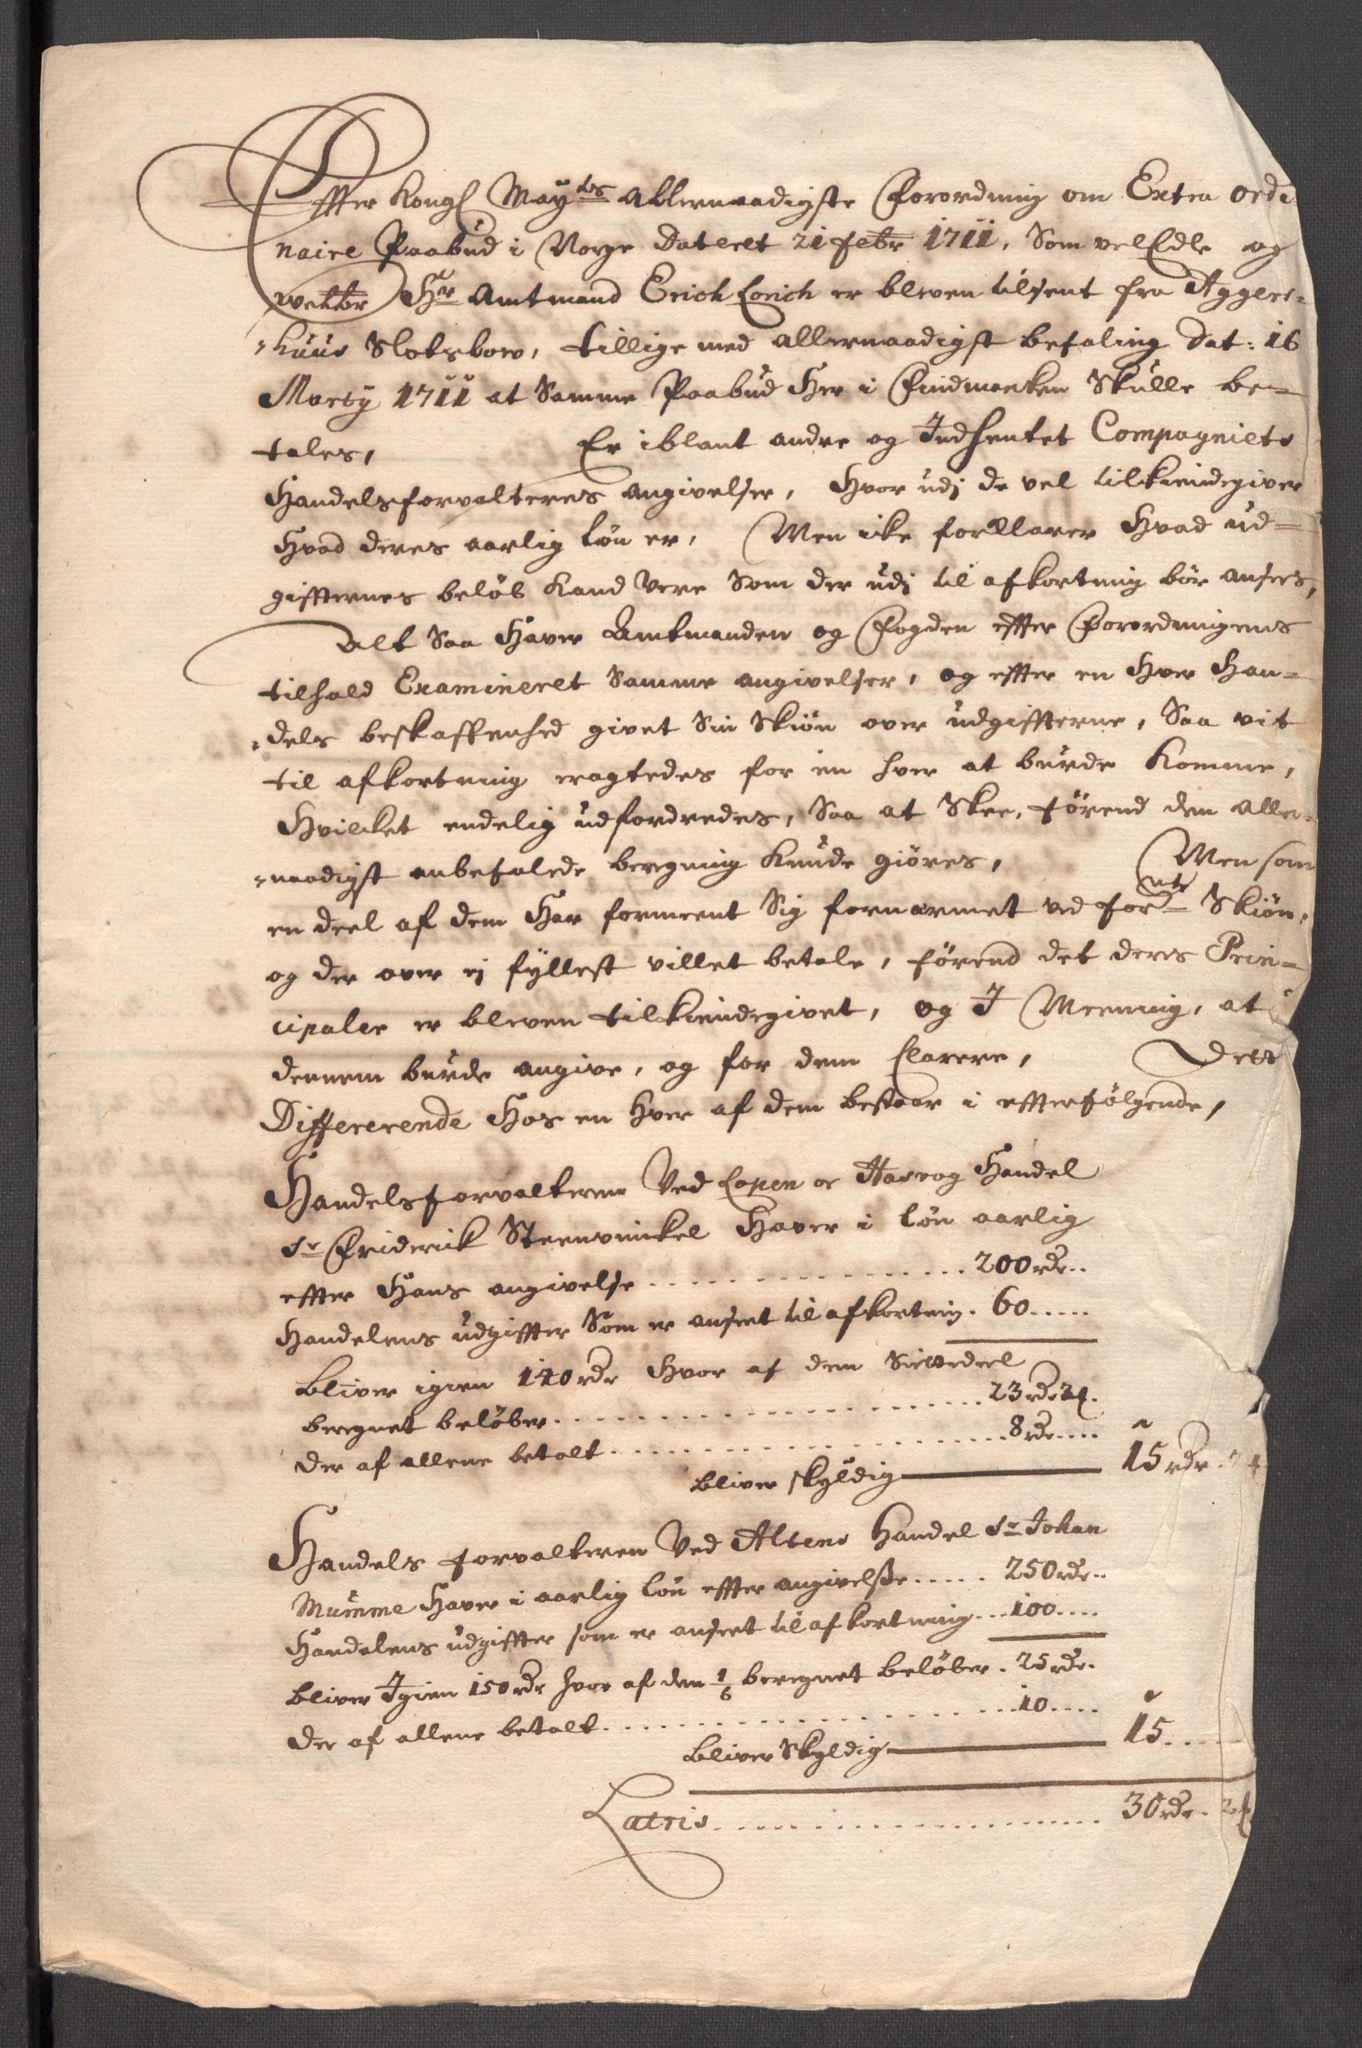 Effter Kongl May^ts Allernaadigste Forordning om Extra ordi
naire Paabud i Norge Dateret 21 Febr 1711, Som velEdle og
velbr Hr Amtmand Erich Lorich er bleven tilsent fra Aggers-
-huus Slotsbow, tillige med allernaadigst befaling Dat: 16
Marty 1711 at Samme Paabud Her i Findmarken Skulle be-
tales, Er iblant andre og Indhentet Compagniets
Handelsforvalteres angivelser, Hvor udj de vel tilkiendegiver
Hvad deres aarlig løn er, Men icke forklarer Hvad ud-
giffternes beløb Kand Vere Som der udj til afkortning bør ansees,
Alt Saa Haver Amtmanden og Fogden effter Forordningens
tilhold Examineret Samme angivelser, og effter en Hver Han-
-dels beskaffenhed givet Sin Skiøn over udgiffterne, Saa vit
til afkortning eragtedes for en hver at burde Komme,
Hvilcket endelig udfordredes, Saa at Skee, førend den aller-
-naadigst anbefalede beregning Kunde giøres, Men som
en deel af dem Har formeent Sig fornærmet ved for^nte Skiøn,
og der over ej fyllest villet betale, førend det deres Prin-
cipaler er bleven tilkiendegivet, og I Meening, at
dennem burde angive, og for dem Clarere, Dess
Differerende Hos en Hver af dem bestaar i effterfølgende,
Handelsforvalteren Ved Lopen oc Hasvog Handel
Sr Friderick Steenvinckel Haver i løn aarlig
effter Hans angivelse . . . . 200 rdr..
Handelens udgiffter Som er anseet til afkortning. 60 ....
Bliver igien 140 rdr Hvor af den Siette deel
beregnet beløber . . . . 23 rdr 2 ß.
Der af allene betalt . . . . 8 rdr ....
bliver skyldig — 15 rdr. 2 ß
Handels forvalteren Ved Altens Handel Sr Johan
Mumme Haver i aarlig løn effter angivelsse ..... 250 rdr..
Handelens udgiffter som er anseet til afkortning ... 100 ....
bliver Igien 150 rdr hvor af den 1/6 beregnet beløber . 25 rdr.
Der af allene betalt . . . . 10 ....
bliver Skyldig — 15 ....
Latris . . . . 30 rdr. 2 ß